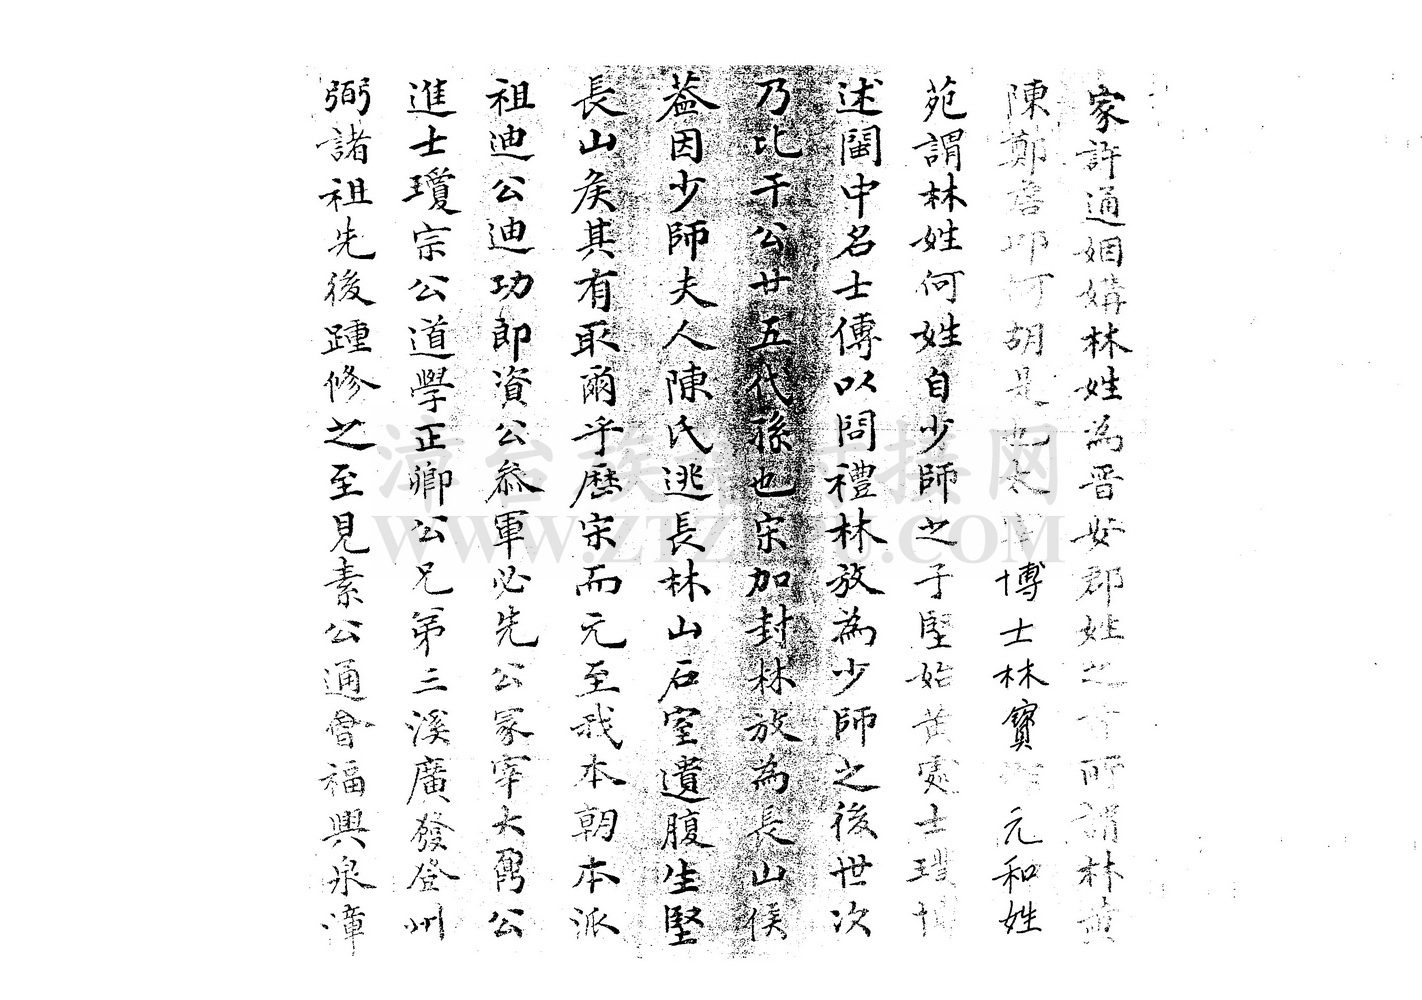 家許通姻媾林姓為晋安郡姓之首所謂林黃
陳鄭詹邱何胡是也太常博士林寶撰元和姓
苑謂林姓何姓自少師之子堅始黃處士璞博
述閩中名士傳以問禮林放為少師之後世次
乃比干公廿五代孫也宋加封林放為長山侯
葢因少師夫人陳氏逃長林山石室遺腹生堅
長山矦其有取爾乎歷宋而元至我本朝本派
祖迪公迪功郎資公叅軍必先公冢宰大鼐公
進士瓊宗公道學正卿公兄弟三溪廣發登州
弼諸祖先後踵修之至見素公通會福興泉漳
漳台族譜對接網
WWW.ZTZUPU.COM